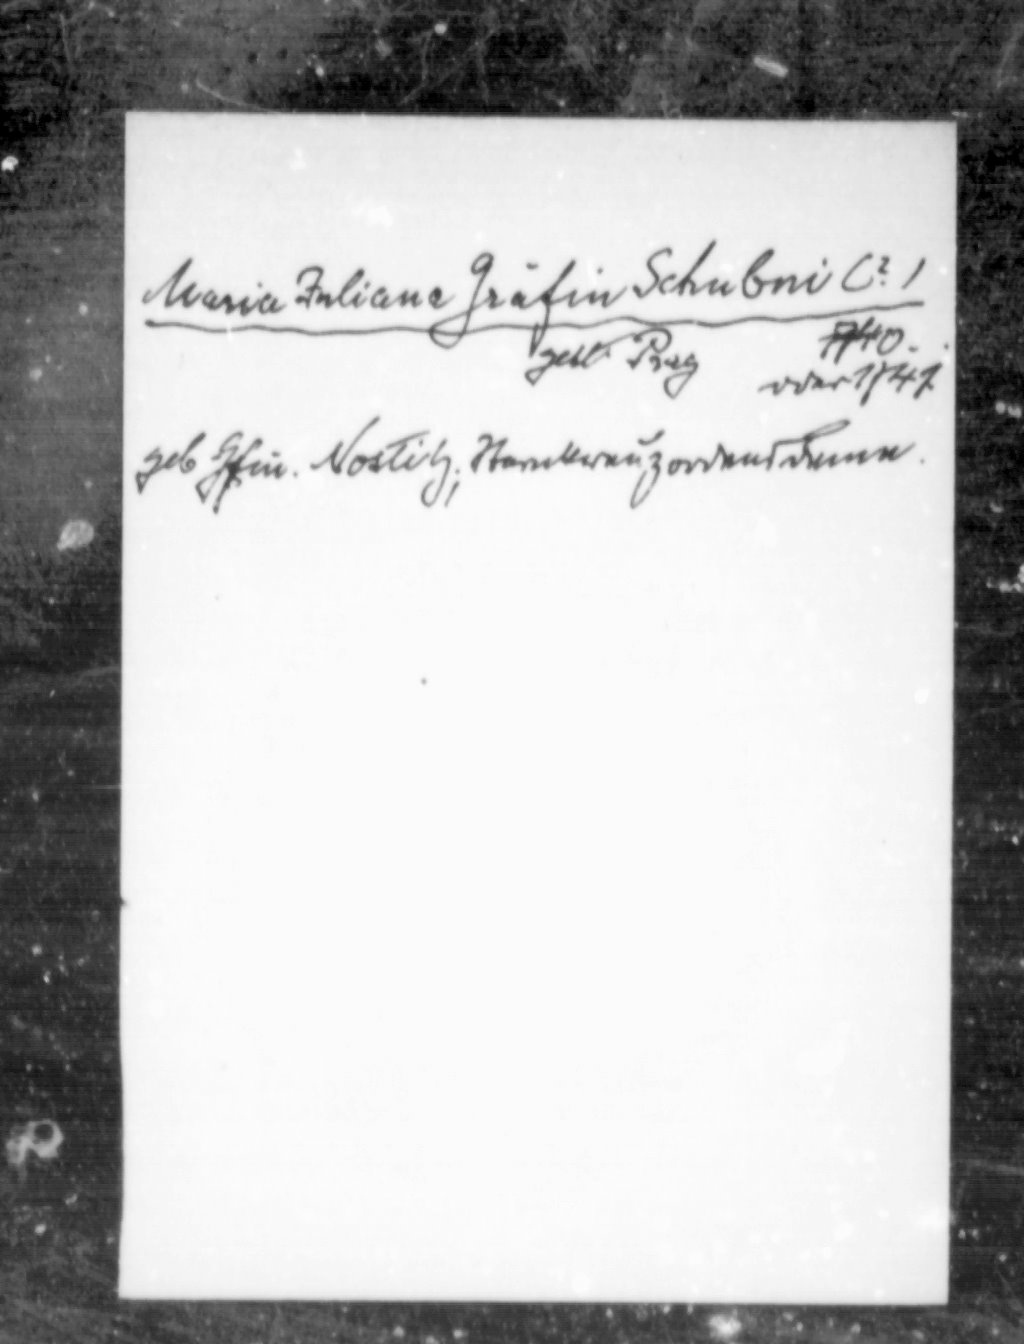 Maria Juliane Gräfin Schubni C? 1
gest. Prag 1740.
oder 1741.
geb Gfin. Nostitz, Sternkreuzordensdame.